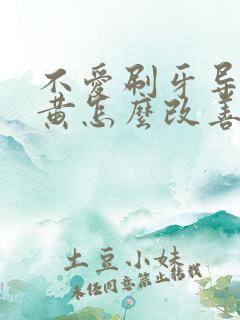 不爱刷牙导
黄怎麼改善
土豆小妹
未经同意禁止转载